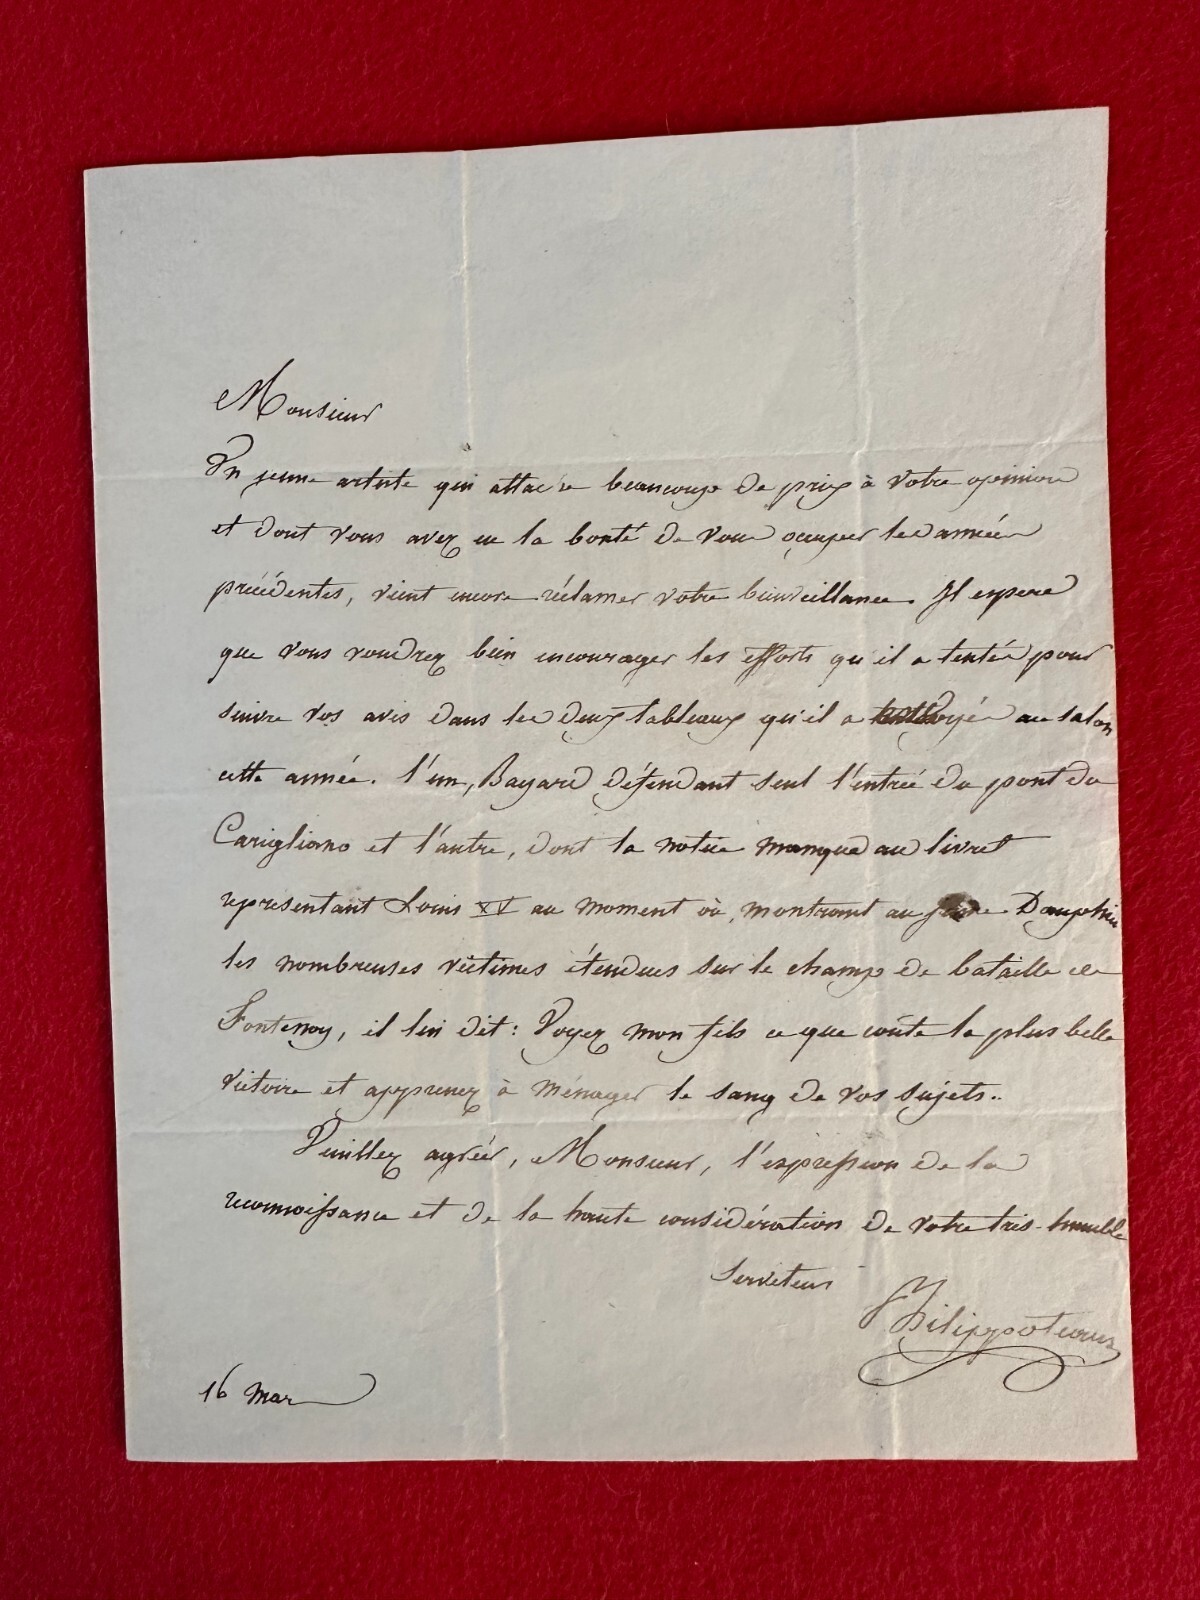 Monsieur
Un jeune artiste qui attache beaucoup de prix à votre opinion
et dont vous avez eu la bonté de vous occuper les années
précédentes, vient encore réclamer votre bienveillance. Il espere
que vous voudrez bien encourager les efforts qu'il a tentés pour
suivre vos avis dans les deux tableaux qu'il a envoyés au salon
cette année. l'un, Bayard défendant seul l'entrée du pont du
Carigliano et l'autre, dont la notice manque au livret
représentant Louis XV au moment où, montrant au jeune Dauphin
les nombreuses victimes étendues sur le champ de bataille de
Fontenoy, il lui dit : Voyez mon fils ce que coûte la plus belle
victoire et apprenez à ménager le sang de vos sujets..
Veuillez agréer, Monsieur, l'expression de la
reconnoissance et de la haute considération de votre très-humble
Serviteur
Philippoteaux
16 mars